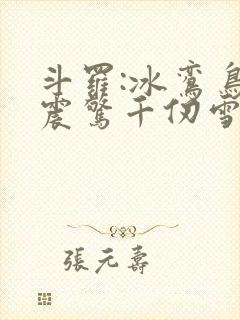 斗羅:冰鸞鳥
震驚千仞雪
張元壽